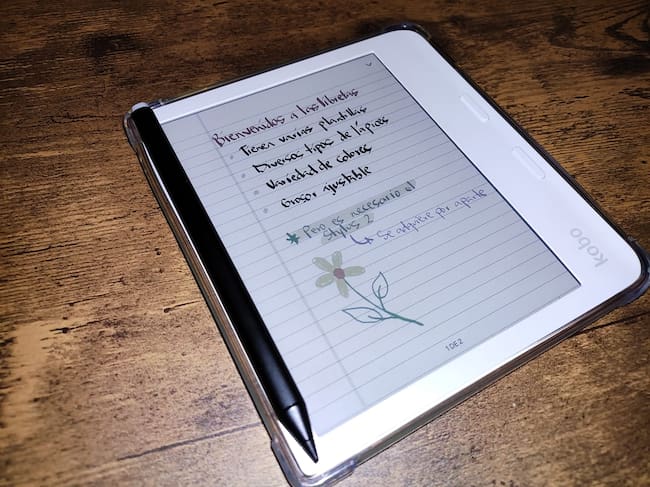 Bienvenidos a las libretas
• Tienen varias plantillas
• Diversos tipos de lápices
• Variedad de colores
• Grosor ajustable
* Pero es necesario el
Stylus 2
↳ Se adquiere por aparte
1 DE 2
kobo